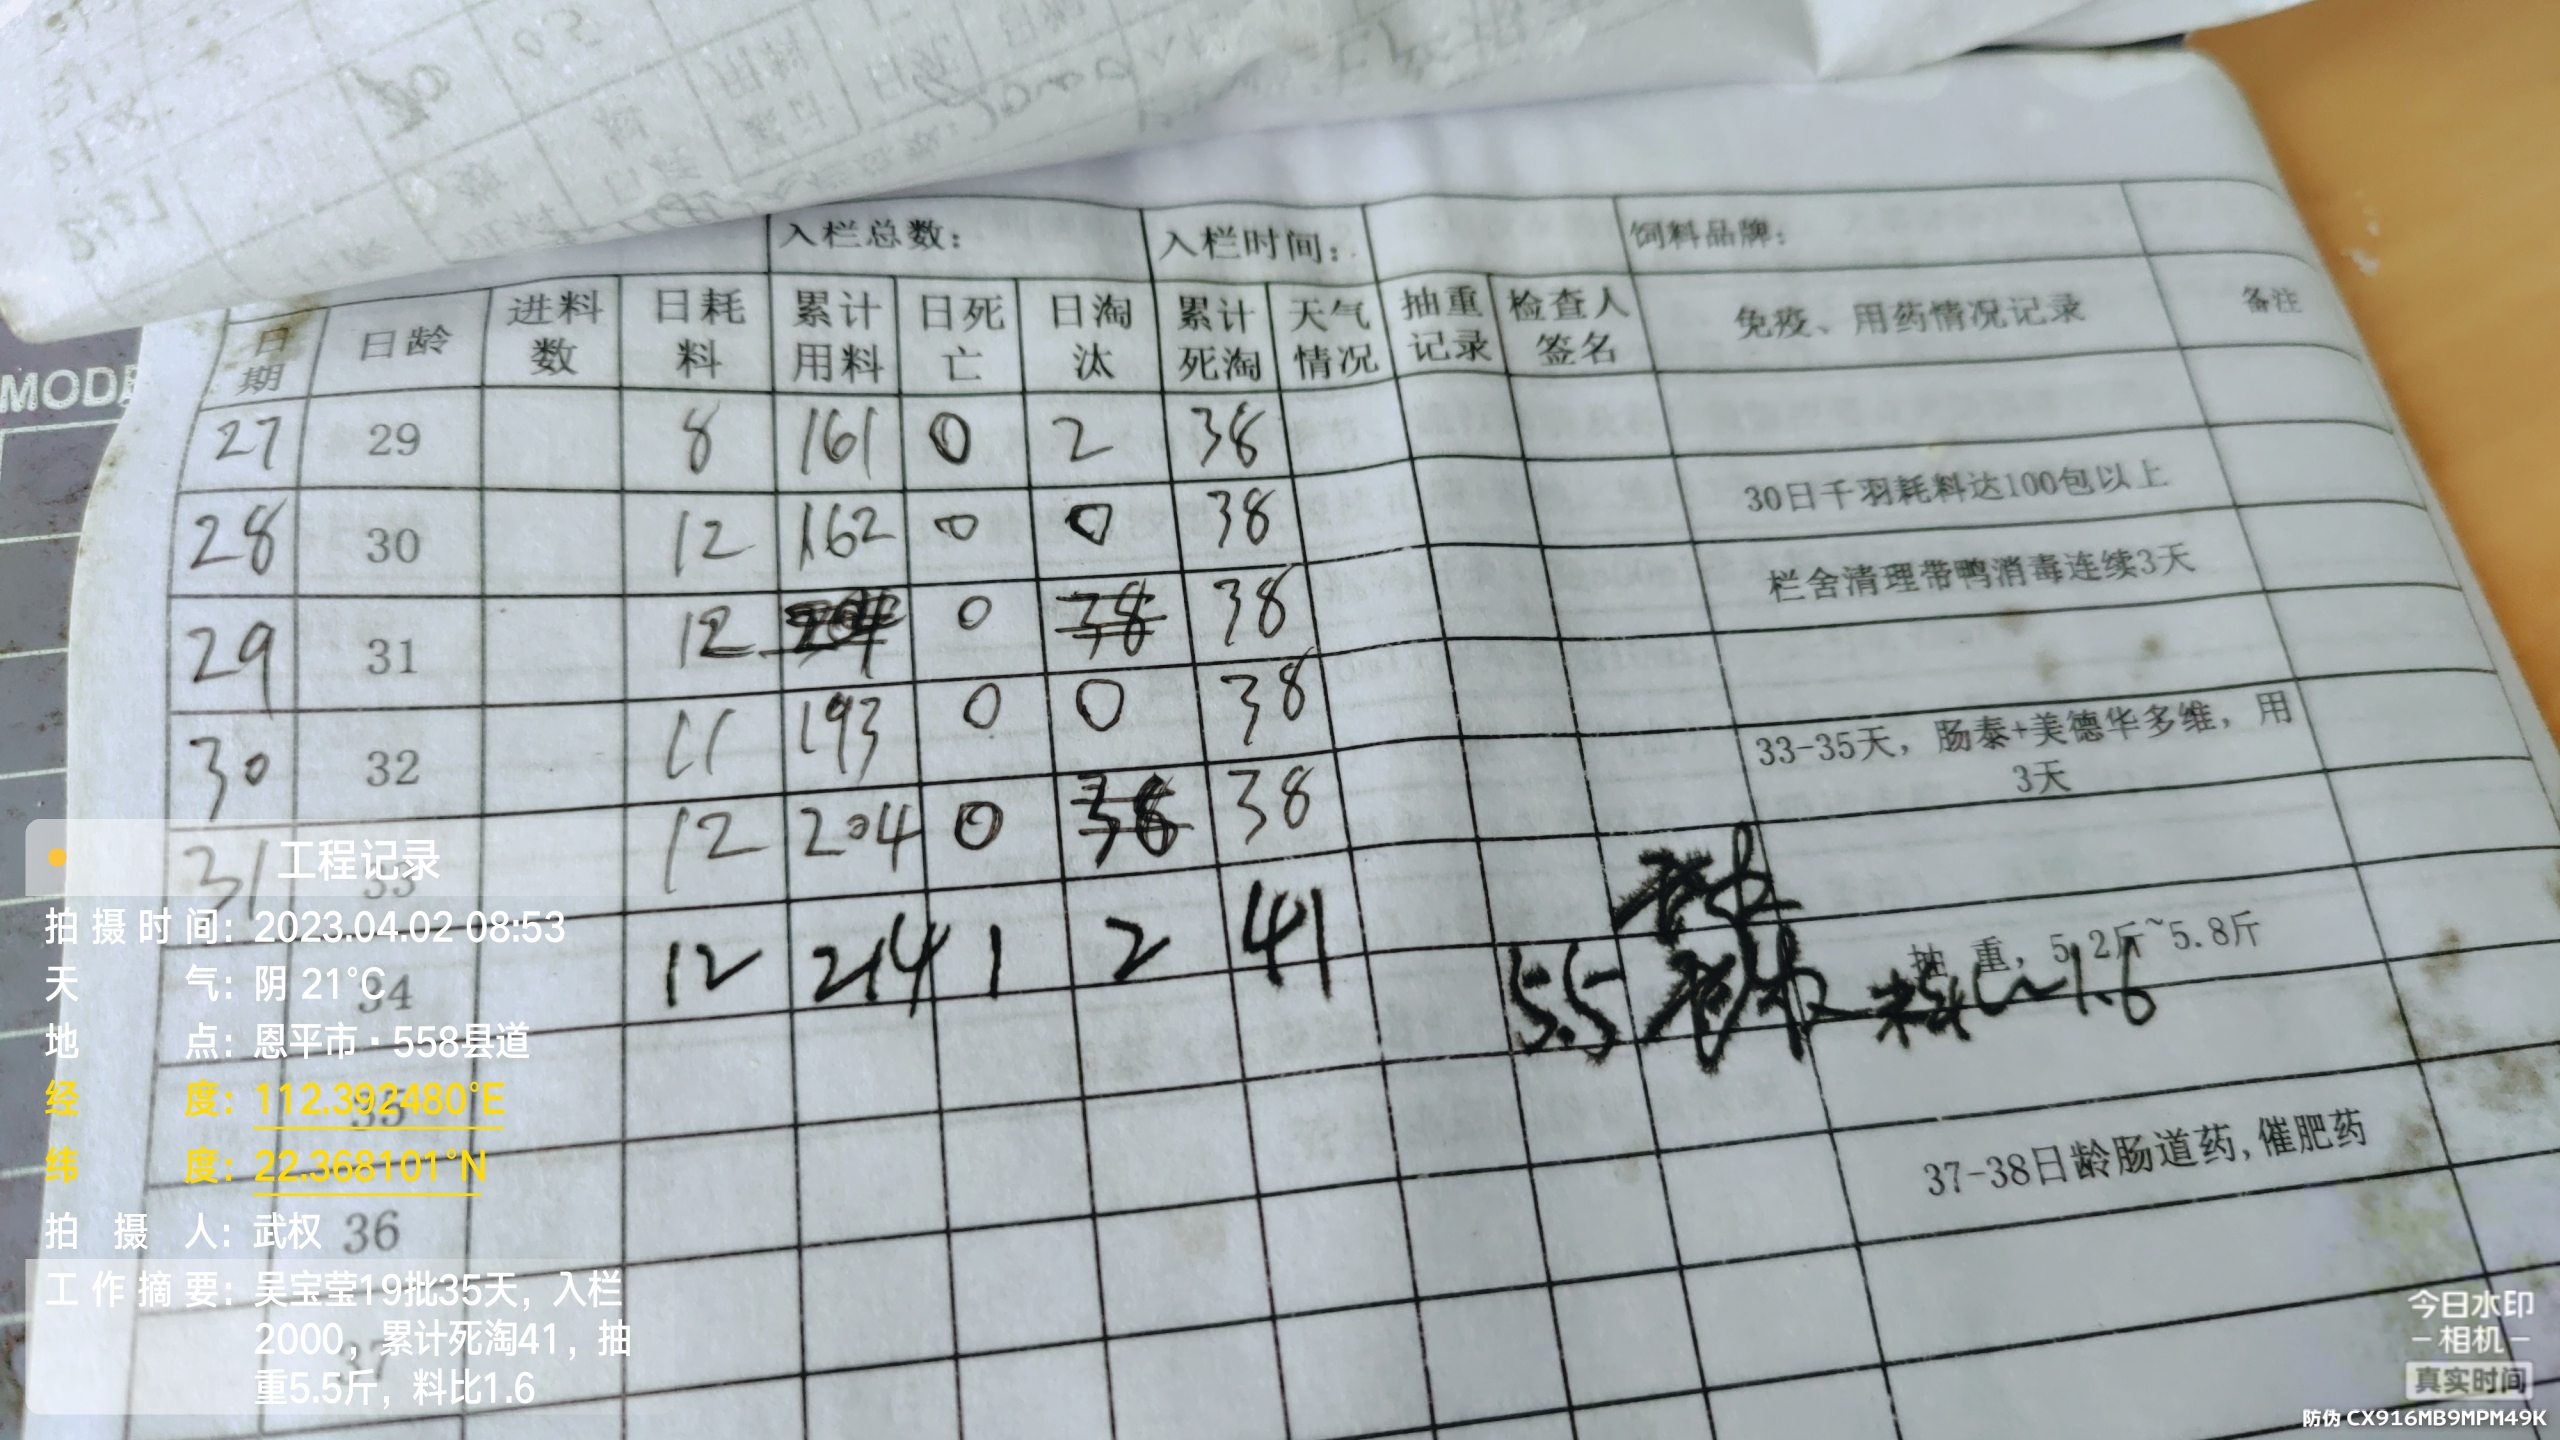 入栏总数： 入栏时间： 饲料品牌：
日期 日龄 进料数 日耗料 累计用料 日死亡 日淘汰 累计死淘 天气情况 抽重记录 检查人签名 免疫、用药情况记录 备注
27 29 8 161 0 2 38
28 30 12 162 0 0 38 30日千羽耗料达100包以上
29 31 12 0 38 38 栏舍清理带鸭消毒连续3天
30 32 11 193 0 0 38
33-35天，肠泰+美德华多维，用3天
31 33 12 204 0 38 38
34 12 214 1 2 41 抽 重，5.2斤~5.8斤
5.5 武权 料比1.6
35
36 37-38日龄肠道药,催肥药
37
MODE
工程记录
拍摄时间：2023.04.02 08:53
天气：阴 21°C
地点：恩平市·558县道
经度：112.392480°E
纬度：22.368101°N
拍摄人：武权
工作摘要：吴宝莹19批35天，入栏
2000，累计死淘41，抽
重5.5斤，料比1.6
今日水印
相机
真实时间
防伪 CX916MB9MPM49K